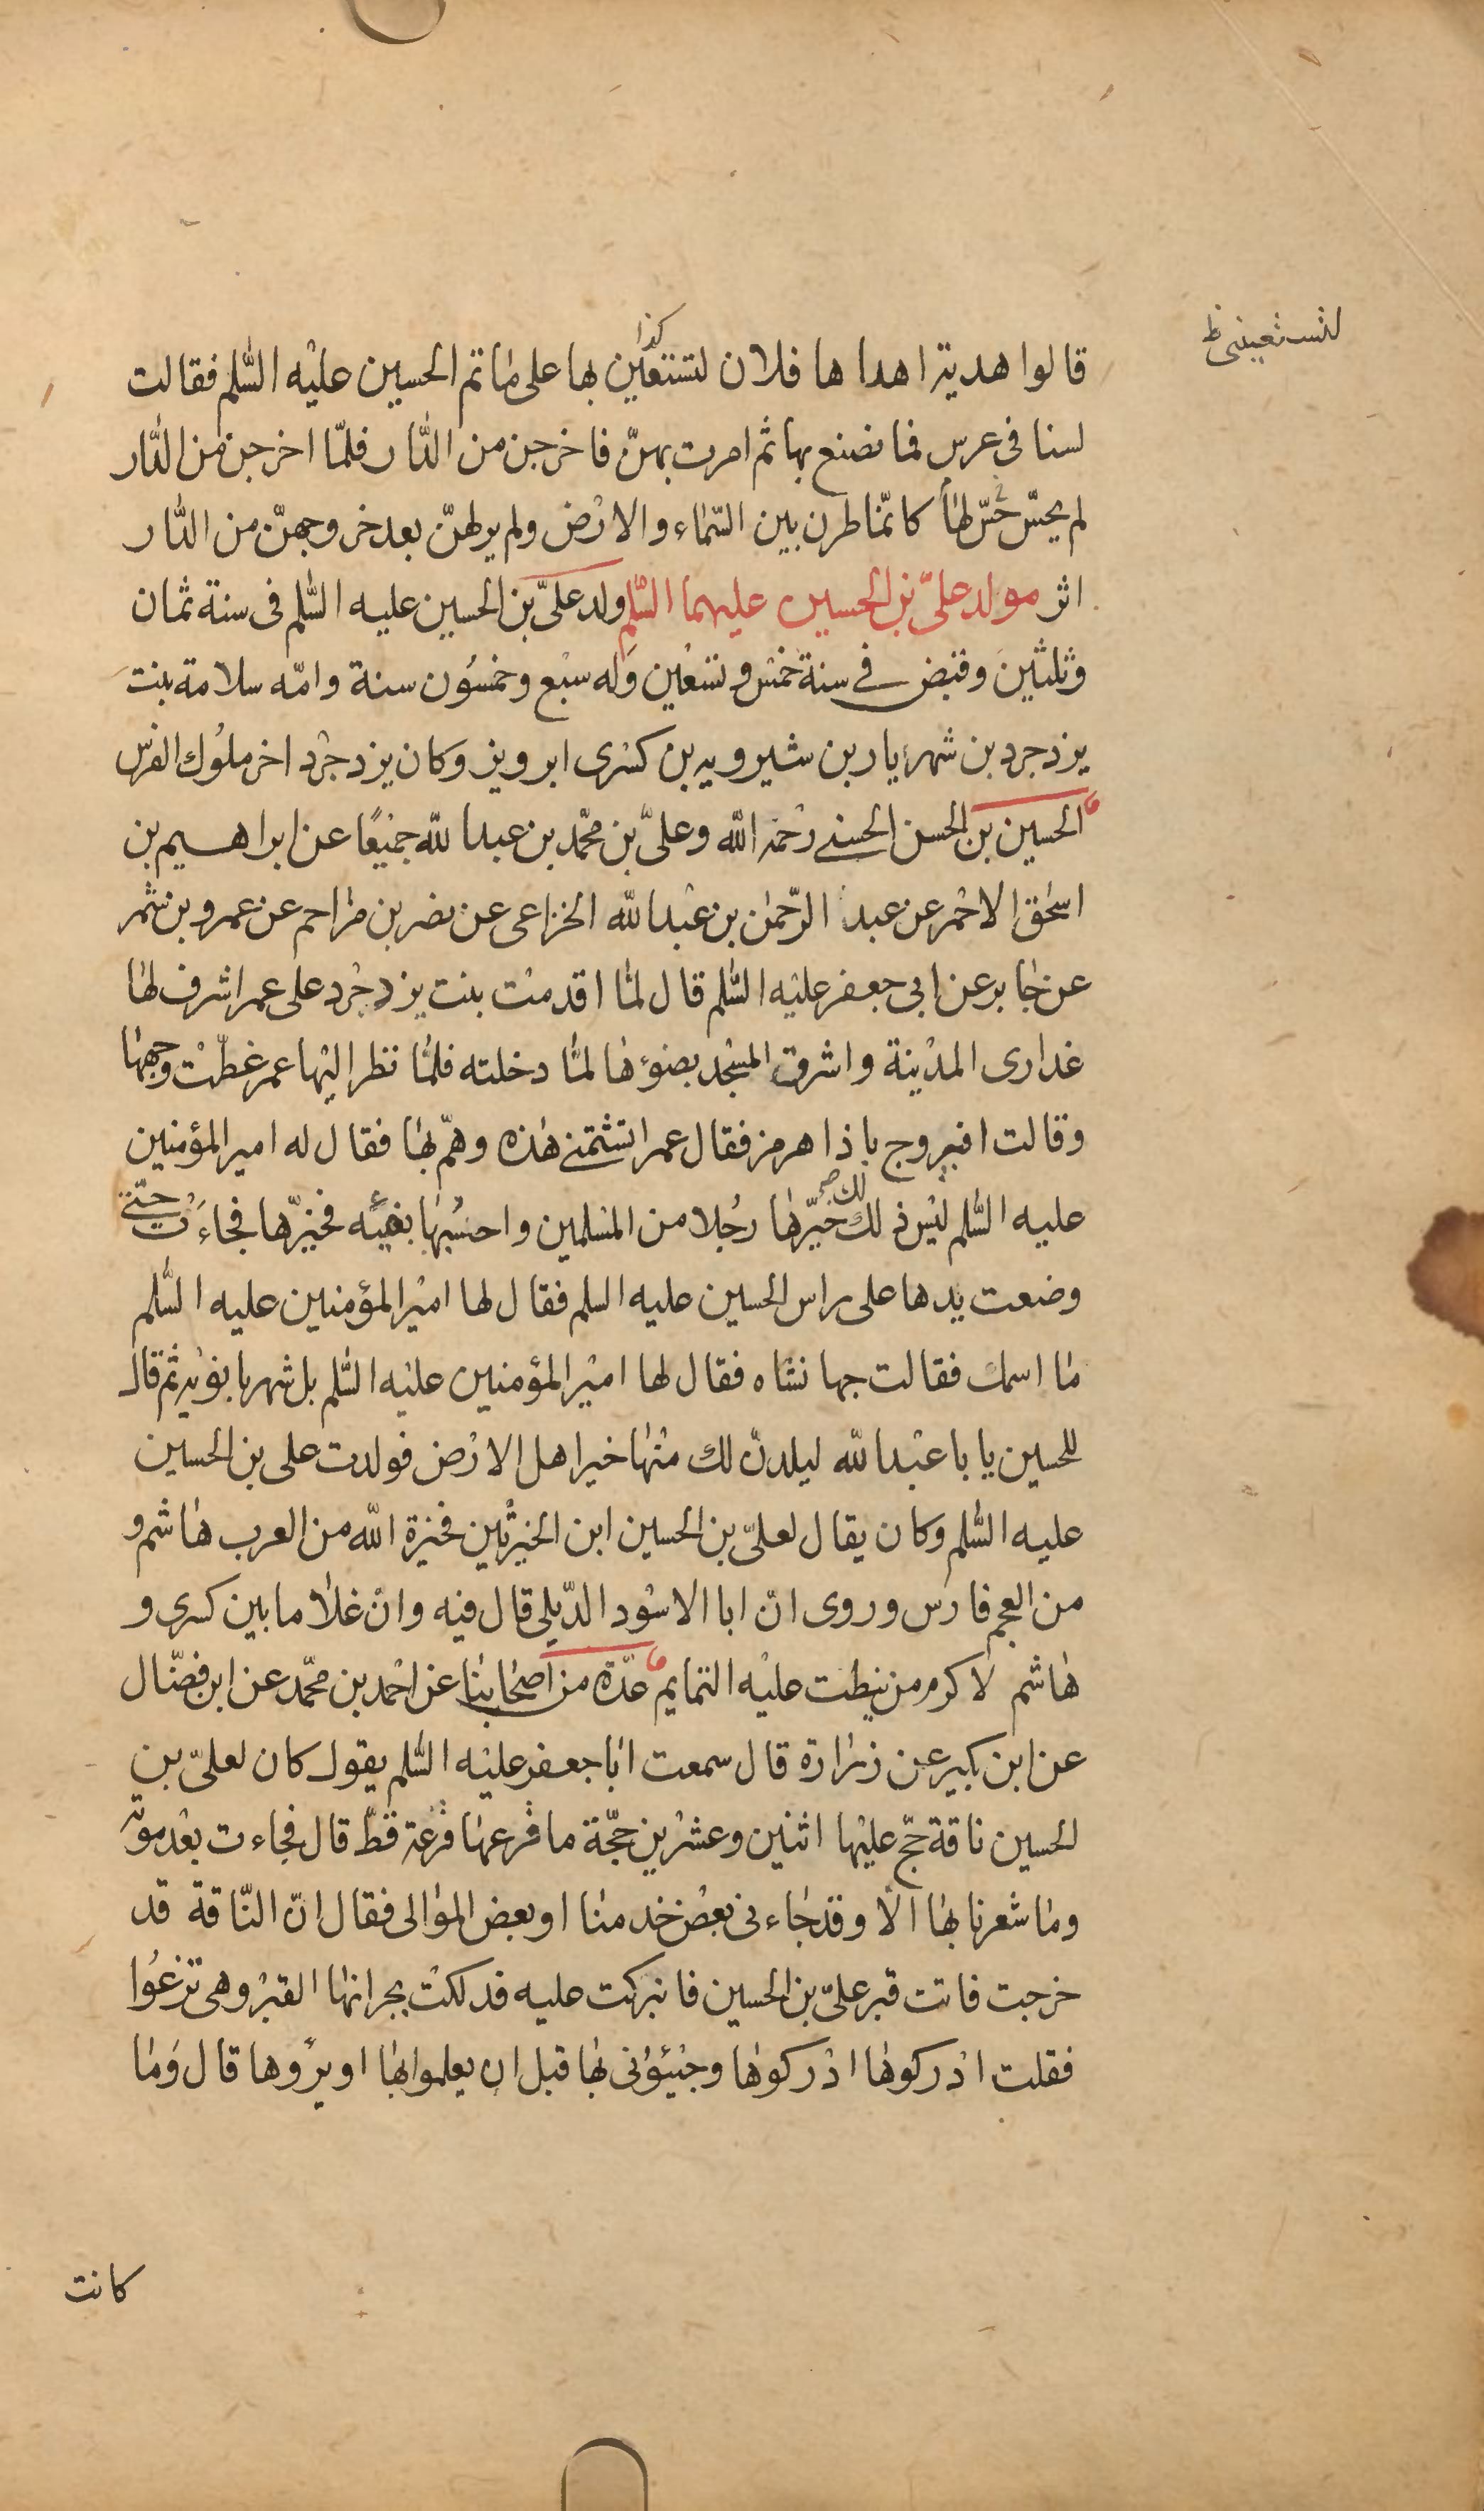 لتستعيني ظ
كذا
قالوا هدية اهداها فلان لتستعين بها على ماتم الحسين عليه السّلم فقالت
لسنا فى عرس فما نصنع بها ثم امرت بهنّ فاخرجن من الدّار فلمّا اخرجن من الدّار
لم يحسّ حسّ لها كانّما طرن بين السّماء والارض ولم ير لهنّ بعد خروجهنّ من الدّار
اثر مولد علىّ بن الحسين عليهما السّلم ولد علىّ بن الحسين عليه السّلم فى سنة ثمان
وثلثين وقبض فى سنة خمس وتسعين وله سبع وخمسون سنة وامّه سلامة بنت
يزدجرد بن شهريار بن شيرويه بن كسرى ابرويز وكان يزدجرد اخر ملوك الفرس
الحسين بن الحسن الحسنى رحمه الله وعلىّ بن محمّد بن عبد الله جميعًا عن ابراهيم بن
اسحق الاحمر عن عبد الرّحمن بن عبد الله الخزاعى عن نصر بن مزاحم عن عمرو بن شمر
عن جابر عن ابى جعفر عليه السّلم قال لمّا اقدمت بنت يزدجرد على عمر اشرف لها
عذارى المدينة واشرق المسجد بضوءها لمّا دخلته فلمّا نظر اليها عمر غطّت وجهها
وقالت افيروج باذا هرمز فقال عمر اتشتمنى هذه وهمّ بها فقال له امير المؤمنين
عليه السّلم ليس ذلك لك صح خيّرها رجُلا من المسلمين واحسُبها بفيئه فخيّرها فجاءت حتّى
وضعت يدها على راس الحسين عليه السلم فقال لها امير المؤمنين عليه السّلم
ما اسمك فقالت جهانشاه فقال لها امير المؤمنين عليه السّلم بل شهربانويه ثم قال
للحسين يا با عبد الله ليلدنّ لك منها خير اهل الارض فولدت على بن الحسين
عليه السّلم وكان يقال لعلىّ بن الحسين ابن الخيرتين فخيرة الله من العرب هاشم و
من العجم فارس وروى انّ ابا الاسود الدّيلى قال فيه وانّ غلاما بين كسرى و
هاشم لاكرم من نيطت عليه التمايم عدّة من اصحابنا عن احمد بن محمّد عن ابن فضّال
عن ابن بكير عن زرارة قال سمعت ابا جعفر عليه السّلم يقول كان لعلىّ بن
الحسين ناقة حجّ عليها اثنين وعشرين حجّة ما قرعها قرعة قطّ قال فجاءت بعد موته
وما شعرنا بها الّا وقد جاءنى بعض خدمنا او بعض الموالى فقال انّ النّاقة قد
خرجت فاتت قبر علىّ بن الحسين فانبركت عليه فدلكت بجرانها القبر وهى ترغوا
فقلت ادركوها ادركوها وجيئونى بها قبل ان يعلموا بها او يروها قال وما
كانت